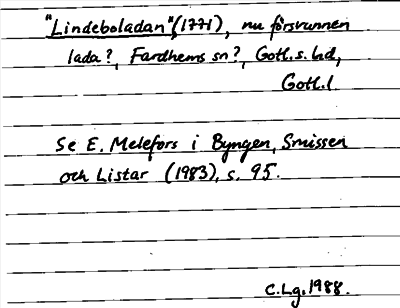 "Lindeboladan"(1771), nu försvunnen
lada?, Fardhems sn?, Gotl.s. hd,
Gotl.l
Se E. Melefors i Byngen, Smissen
och Listar (1983), s. 95.
C.Lg.1988.